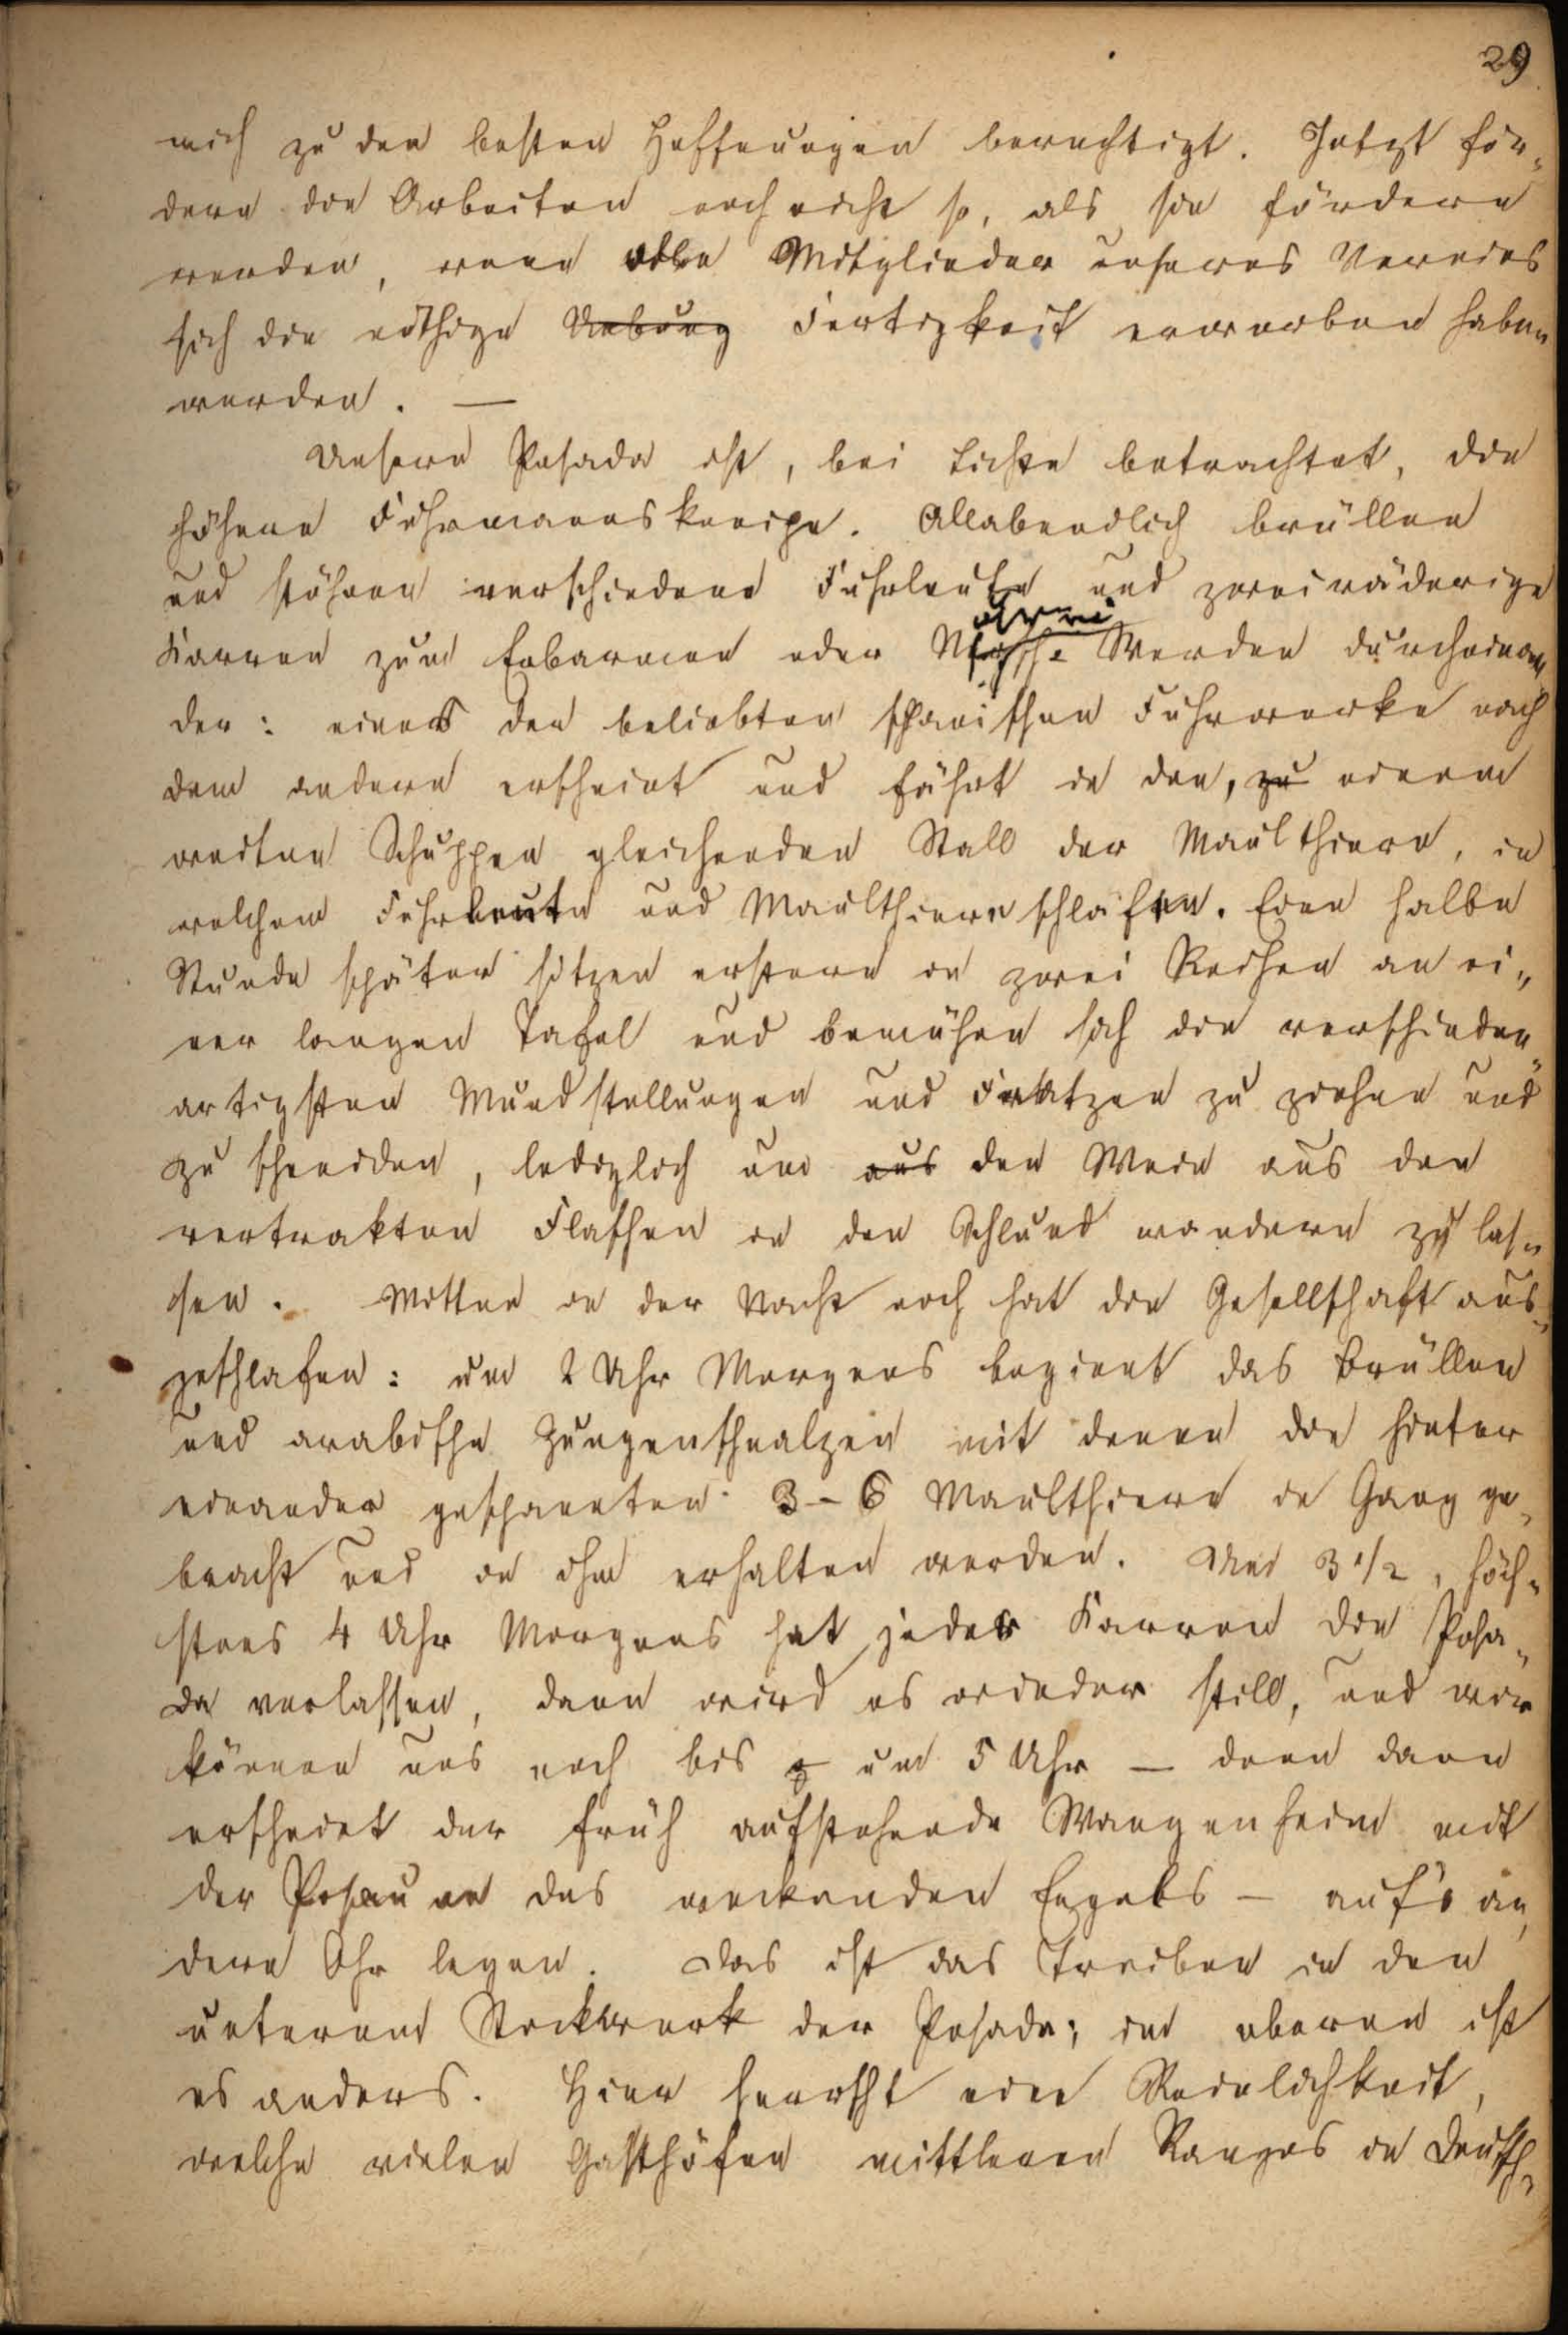 29
mich zu den besten Hoffnungen berechtigt. Jetzt för-
dern die Arbeiten noch nicht so, als sie fördern
werden, wenn alle Mitglieder unseres Vereins
sich die nöthige Uebung Fertigkeit erworben haben
werden. —
Unsere Posada ist, bei Lichte betrachtet, die
schönste Fuhrmannskneipe. Allabendlich brüllen
und stöhnen verschiedene Fuhrleute und zweiräderige
Karren zum Erbarmen oder Werden durcheinan-
der: eines der beliebten spanischen Fuhrwerke nach
dem andern erscheint und fährt in den, zu einem
weiten Schuppen gleichenden Stall der Maulthiere, in
welchem Fuhrleute und Maulthiere schlafen. Eine halbe
Stunde später sitzen erstere in zwei Reihen an ei-
ner langen Tafel und bemühen sich die verschieden-
artigsten Mundstellungen und Fratzen zu ziehen und
zu schneiden, lediglich um aus den Wein aus den
vertrakten Flaschen in den Schlund wandern zu las-
sen. Mitten in der Nacht noch hat die Gesellschaft aus-
geschlafen: um 2 Uhr Morgens beginnt das Brüllen
und arabische Zungenschnalzen mit denen die hinter
einander gespannten 3-6 Maulthiere in Gang ge-
bracht und in ihm erhalten werden. Um 3 1/2, höch-
stens 4 Uhr Morgens hat jeder Karren die Posa-
da verlassen, dann wird es wieder still, und wir
können uns noch bis um 5 Uhr — denn dann
erscheint der früh aufstehende Wangenheim mit
der Posaune des weckenden Engels — auf's an-
dere Ohr legen. Das ist das Treiben in den
unterem Stockwerk der Posada; im oberen ist
es anders. Hier herrscht eine Reinlichkeit,
welche vielen Gasthöfen mittleren Ranges in Deutsch-